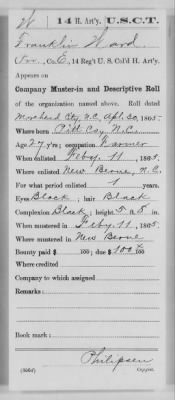 W 14 H. Art'y. U.S.C.T.
Franklin Ward
Pvr., Co. E, 14 Reg't U. S. Col'd H. Art'y.
Appears on
Company Muster-in and Descriptive Roll
of the organization named above. Roll dated
Morehead City, N.C., Apl. 30, 1865.
Where born Pitt Coy., N.C.
Age 27 y'rs; occupation Farmer
When enlisted Feby. 11, 1865.
Where enlisted New Berne, N.C.
For what period enlisted 1 years.
Eyes Black; hair Black
Complexion Black; height 5 ft. 8 in.
When mustered in Feby. 11, 1865.
Where mustered in New Berne
Bounty paid $ 100; due $ 100 100
Where credited
Company to which assigned
Remarks:
Book mark:
Philipsen
Copyist.